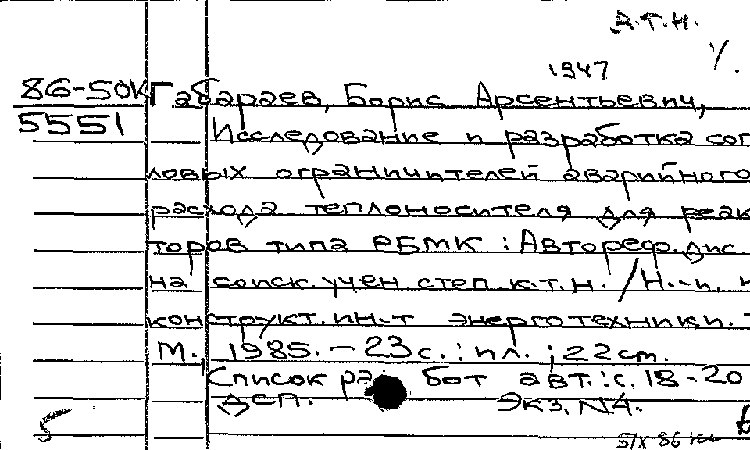 Д.Т.Н.
1947
86-50К Габараев, Борис Арсентьевич,
5551 Исследование и разработка соп
ловых ограничителей аварийного
расхода теплоносителя для реак
торов типа РБМК : Автореф. дис.
на соиск. учен. степ. к.т.н. / Н.-и. и
конструкт. ин-т энерготехники. -
М., 1985. - 23 с. : ил. ; 22 см.
Список работ авт.: с. 18-20
ДСП. Экз. N4.